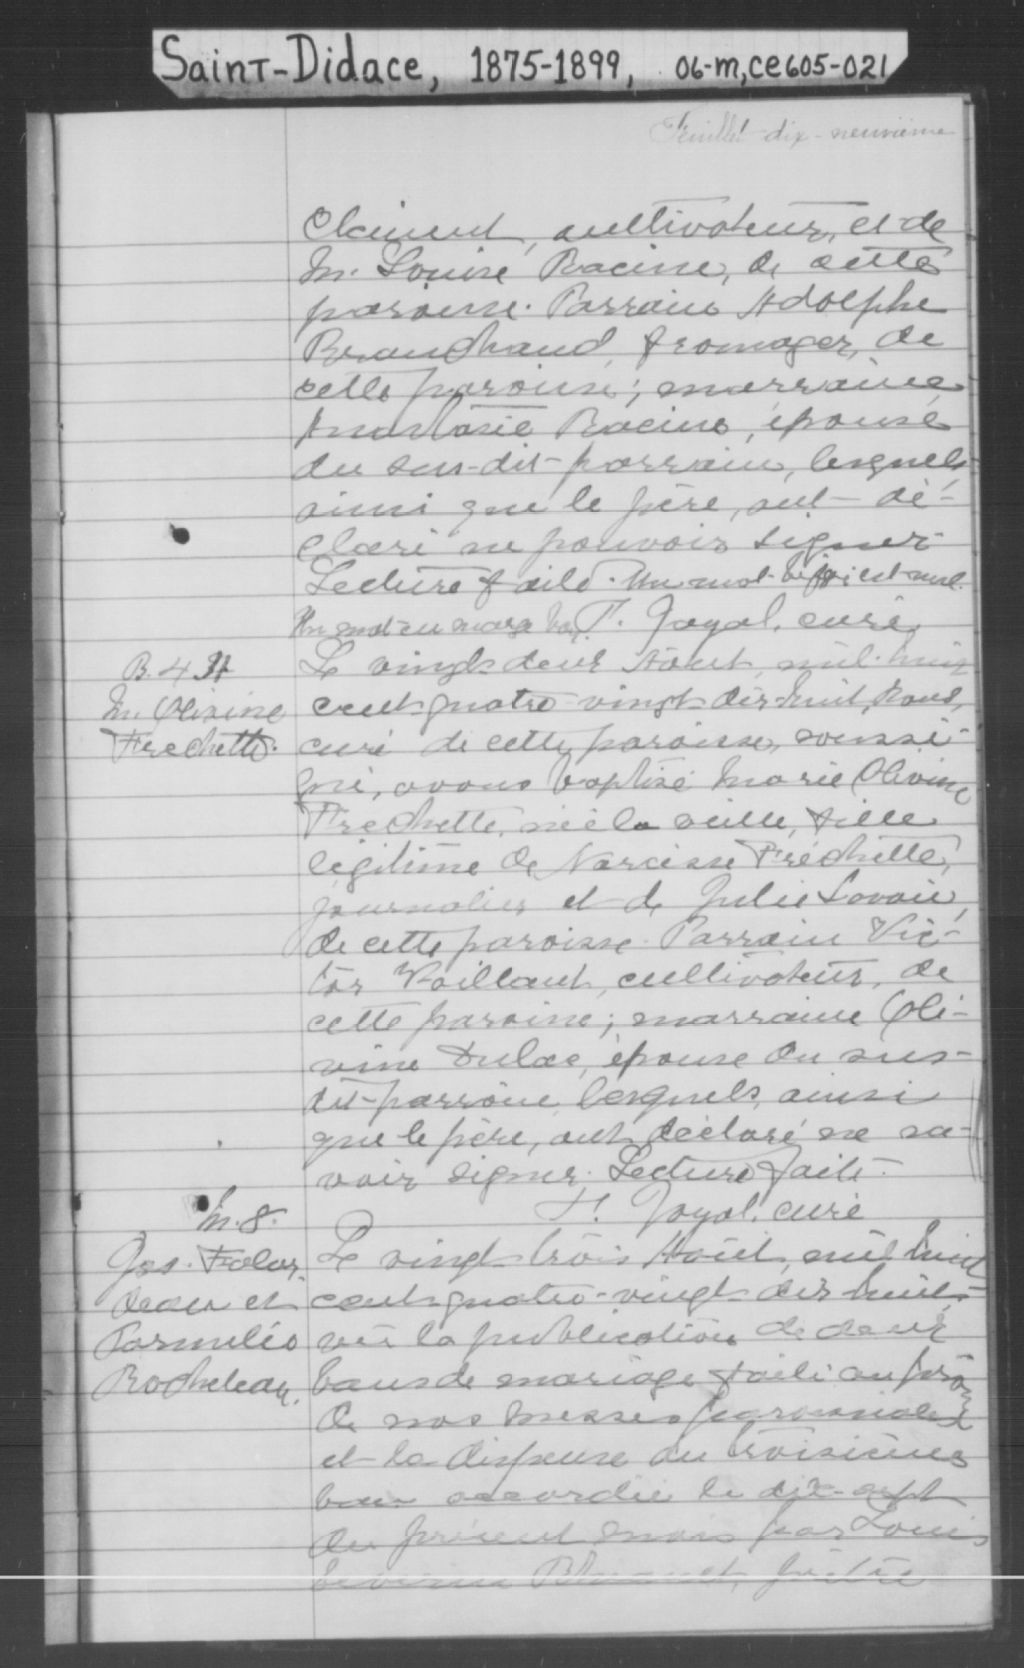 Saint-Didace, 1875-1899, 06-m,ce605-021
Feuillet dix-neuvième
Clément, cultivateur, et de
M. Louise Racine, de cette
paroisse. Parrain Adolphe
fromager, de
cette paroisse; marraine
Anastasie Racine, épouse
du sus-dit parrain, lesquels
ainsi que le père, ont dé-
claré ne pouvoir signer.
Lecture faite. Un mot est nul.
Un mot en marge F. Joyal, curé
B. 41
M. Olivine
Frechette.
Le vingt-deux Août, mil-huit
cent-quatre-vingt dix-huit, Nous,
curé de cette paroisse, soussi-
gné, avons baptisé Marie Olivine
Frechette, née la veille, fille
légitime de Narcisse Fréchette,
journalier et de Julie Lavoie,
de cette paroisse. Parrain Vic-
tor Vaillant, cultivateur, de
cette paroisse; marraine Oli-
vine Dulac, épouse du sus-
dit-parrain, lesquels, ainsi
que le père, ont déclaré ne sa-
voir signer. Lecture faite.
F. Joyal, curé
M. 8.
Jos. Falar-
deau et
Parmélie
Rocheleau.
Le vingt-trois Août, mil huit
cent-quatre-vingt-dix huit,
vu la publication de deux
bans de mariage faite au prône
de nos messes paroissiales
et la dispense du troisième
ban accordée le dix-sept
du présent mois par Louis
prêtre